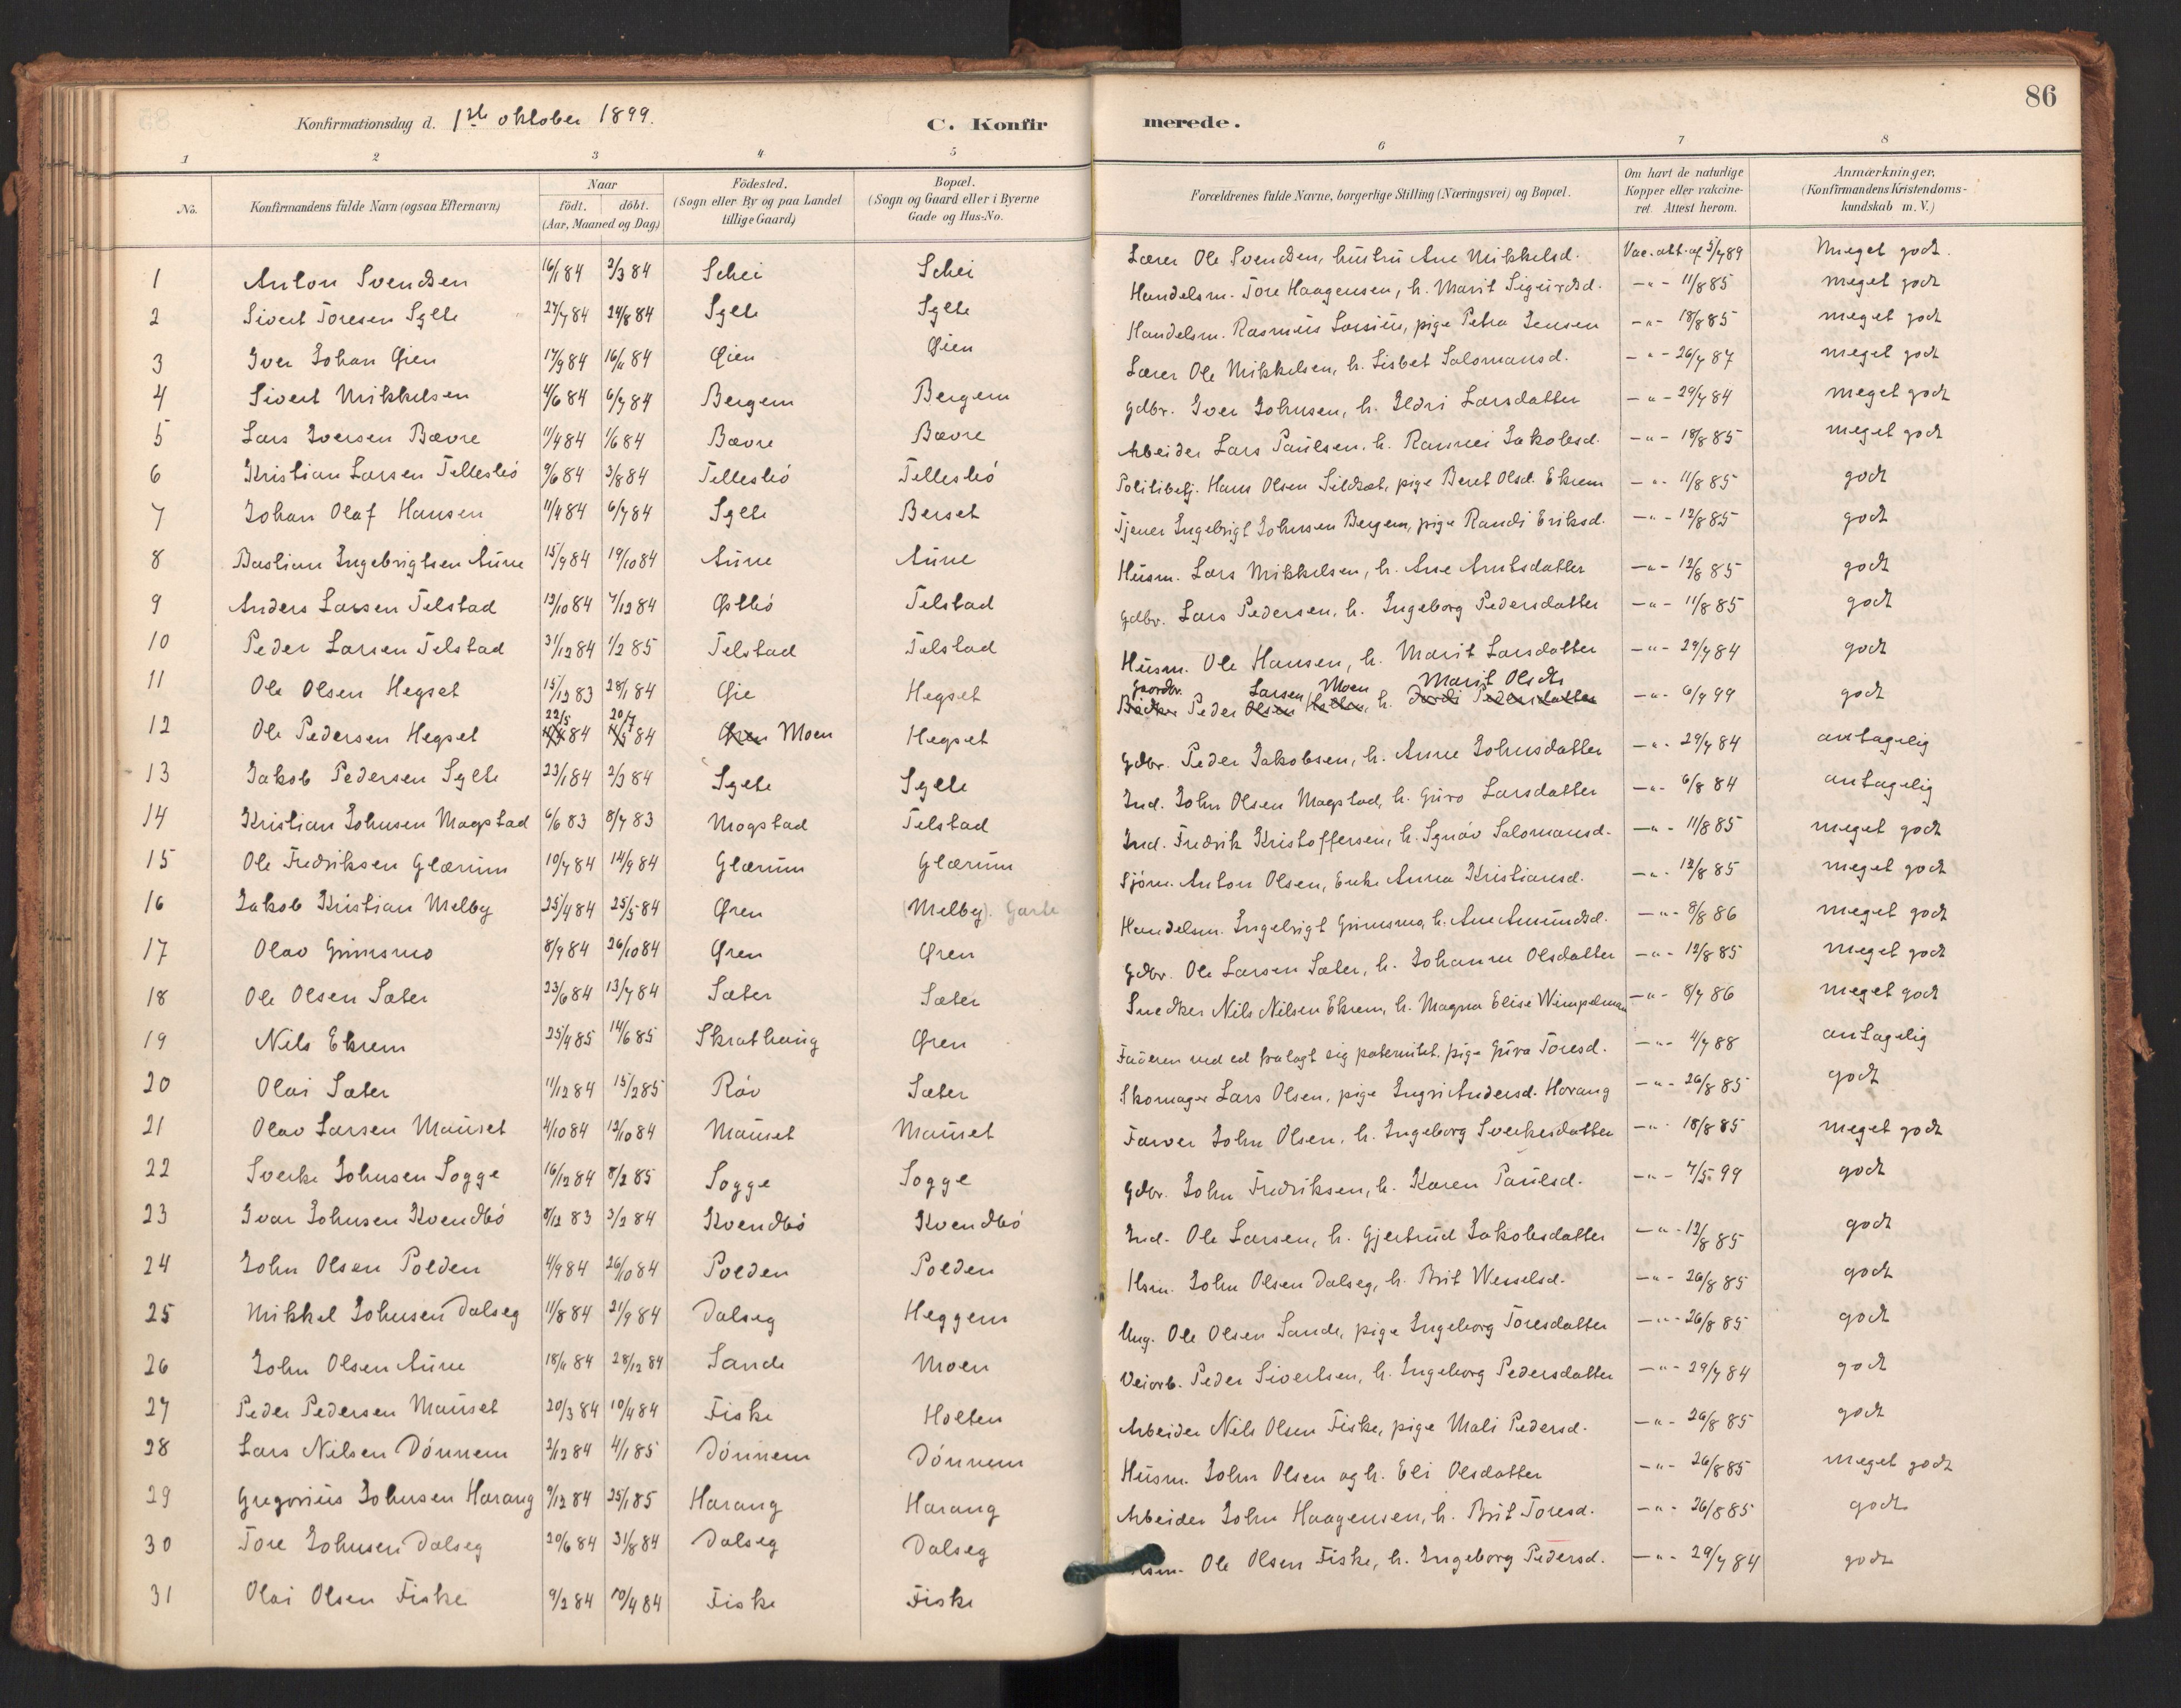 86
Konfirmationsdag d. 1ste oktober 1899. C. Konfirmerede.
1 2 3 4 5 6 7 8
No. Konfirmandens fulde Navn (ogsaa Efternavn) Naar født. døbt. (Aar, Maaned og Dag) Födested. (Sogn eller By og paa Landet tillige Gaard) Bopæl. (Sogn og Gaard eller i Byerne Gade og Hus-No. Forældrenes fulde Navne, borgerlige Stilling (Næringsvei) og Bopæl. Om havt de naturlige Kopper eller vakcineret. Attest herom. Anmærkninger, (Konfirmandens Kristendomskundskab m. V.)
1 Anton Svendsen 16/1 84 2/3 84 Schei Schei Lærer Ole Svendsen, hustru Ane Mikkelsd. Vac. att. af 5/7 89 Meget godt.
2 Sivert Toresen Sylte 27/7 84 24/8 84 Sylte Sylte Handelsm. Tore Haagensen, h. Marit Sigurdsd. -"- 11/8 85 meget godt
3 Iver Johan Øien 17/9 84 16/11 84 Øien Øien Handelsm. Rasmus Larsen, pige Petra Jensen -"- 18/8 85 meget godt
4 Sivert Mikkelsen 4/6 84 6/7 84 Bergem Bergem Lærer Ole Mikkelsen, h. Lisbet Salomonsd. -"- 26/7 87 meget godt
5 Lars Iversen Bævre 11/4 84 1/6 84 Bævre Bævre Gdbr. Iver Johnsen, h. Ildri Larsdatter -"- 29/7 84 meget godt
6 Kristian Larsen Tellesbø 9/6 84 3/8 84 Tellesbø Tellesbø Arbeider Lars Paulsen, h. Rannei Jakobsd. -"- 18/8 85 meget godt
7 Johan Olaf Hansen 11/4 84 6/7 84 Sylte Berset Politibetj. Hans Olsen Sildset, pige Beret Olsd. Ekrem -"- 11/8 85 godt
8 Bastian Ingebrigtsen Aune 15/9 84 19/10 84 Aune Aune Tjener Ingebrigt Johnsen Bergem, pige Randi Eriksd. -"- 12/8 85 godt
9 Anders Larsen Telstad 12/10 84 7/12 84 Østbø Telstad Husm. Lars Mikkelsen, h. Ane Arntsdatter -"- 12/8 85 godt
10 Peder Larsen Telstad 31/12 84 1/2 85 Telstad Telstad Gdbr. Lars Pedersen, h. Ingeborg Pedersdatter -"- 11/8 85 godt
11 Ole Olsen Hegset 15/12 83 28/1 84 Øie Hegset Husm. Ole Hansen, h. Marit Larsdatter -"- 29/7 84 godt
12 Ole Pedersen Hegset 22/5 84 20/7 84 Øren Moen Hegset Gaardbr. Bødker Peder Olsen Larsen Holten Moen, h. Jordi Pedersdatter Marit Olsdtr -"- 6/7 99 godt
13 Jakob Pedersen Sylte 23/1 84 2/3 84 Sylte Sylte Gdbr. Peder Jakobsen, h. Anne Johnsdatter -"- 29/7 84 antagelig
14 Kristian Johnsen Mogstad 6/6 83 8/7 83 Mogstad Telstad Ind. John Olsen Mogstad, h. Guro Larsdatter -"- 6/8 84 antagelig
15 Ole Fredriksen Glærum 10/7 84 14/9 84 Glærum Glærum Ind. Fredrik Kristoffersen, h. Synøv Salomonsd. -"- 11/8 85 meget godt
16 Jakob Kristian Melby 25/4 84 25/5 84 Øren (Melby). Sjöm. Anton Olsen, Enke Anna Kristiansd. -"- 12/8 85 meget godt
17 Olav Grimsmo 8/9 84 26/10 84 Øren Øren Handelsm. Ingebrigt Grimsmo, h. Ane Amundsd. -"- 8/8 86 meget godt
18 Ole Olsen Sæter 23/6 84 13/7 84 Sæter Sæter Gdbr. Ole Larsen Sæter, h. Johanne Olsdatter -"- 12/8 85 meget godt
19 Nils Ekrem 25/4 85 14/6 85 Skrathaug Øren Snedker Nils Nilsen Ekrem, h. Magna Elise Wimpelman -"- 8/7 86 meget godt
20 Olai Sæter 11/12 84 15/2 85 Röv Sæter Faderen ved ed fralagt sig paternitet, pige Guro Toresd. -"- 4/7 88 antagelig
21 Olav Larsen Mauset 4/10 84 12/10 84 Mauset Mauset Skomager Lars Olsen, pige Ingri Andersd. Harang -"- 26/8 85 godt
22 Sverke Johnsen Sogge 16/12 84 8/2 85 Sogge Sogge Farver John Olsen, h. Ingeborg Sverkesdatter -"- 18/8 85 meget godt
23 Ivar Johnsen Kvendbø 8/12 83 3/2 84 Kvendbø Kvendbø Gdbr. John Fredriksen, h. Karen Paulsd. -"- 7/5 99 godt
24 John Olsen Polden 4/9 84 26/10 84 Polden Polden Ind. Ole Larsen, h. Gjertrud Jakobsdatter -"- 12/8 85 godt
25 Mikkel Johnsen Dalseg 11/8 84 21/9 84 Dalseg Heggem Hsm. John Olsen Dalseg, h. Brit Wesselsd. -"- 26/8 85 godt
26 John Olsen Aune 18/11 84 28/12 84 Sande Moen Ung. Ole Olsen Sande, pige Ingeborg Toresdatter -"- 26/8 85 godt
27 Peder Pedersen Mauset 20/3 84 10/4 84 Fiske Holten Veiarb. Peder Sivertsen, h. Ingeborg Pedersdatter -"- 29/7 84 godt
28 Lars Nilsen Dönnem 2/12 84 4/1 85 Dönnem Dönnem Arbeider Nils Olsen Fiske, pige Mali Pedersd. -"- 26/8 85 godt
29 Gregorius Johnsen Harang 9/12 84 25/1 85 Harang Harang Husm. John Olsen og h. Eli Olsdatter -"- 26/8 85 meget godt
30 Tore Johnsen Dalseg 20/6 84 31/8 84 Dalseg Dalseg Arbeider John Haagensen, h. Brit Toresd. -"- 26/8 85 godt
31 Olai Olsen Fiske 9/2 84 10/4 84 Fiske Fiske Hsm. Ole Olsen Fiske, h. Ingeborg Pedersd. -"- 29/7 84 godt